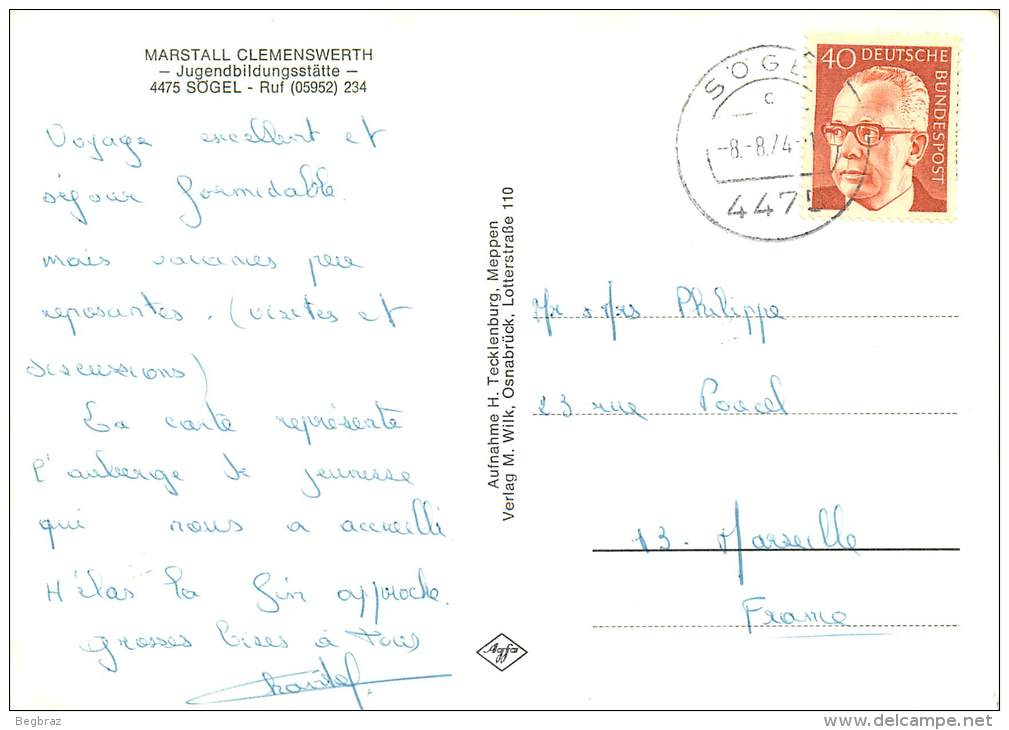 MARSTALL CLEMENSWERTH
– Jugendbildungsstätte –
4475 SÖGEL - Ruf (05952) 234
Voyage excellent et
séjour formidable.
mais vacances peu
reposantes. (visites et
discussions)
La carte représente
l'auberge de jeunesse
qui nous a accueilli
Hélas la fin approche.
grosses bises à tous
Chantal
Aufnahme H. Tecklenburg, Meppen
Verlag M. Wilk, Osnabrück, Lotterstraße 110
Agfa
SÖGEL
c
-8.-8.74-
4475
40 DEUTSCHE BUNDESPOST
Mr & Mrs Philippe
23 rue Poucel
13. Marseille
France
Begbraz
www.delcampe.net